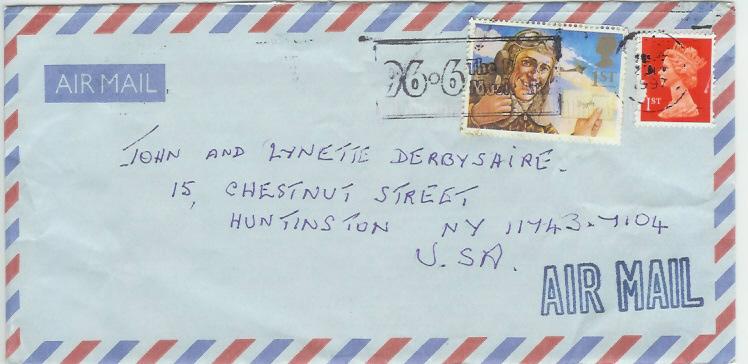 AIR MAIL
96.6 The
Music
1ST
1ST
1997
JOHN AND LYNETTE DERBYSHIRE.
15, CHESTNUT STREET
HUNTINSTON NY 11743-7104
U.S.A.
AIR MAIL